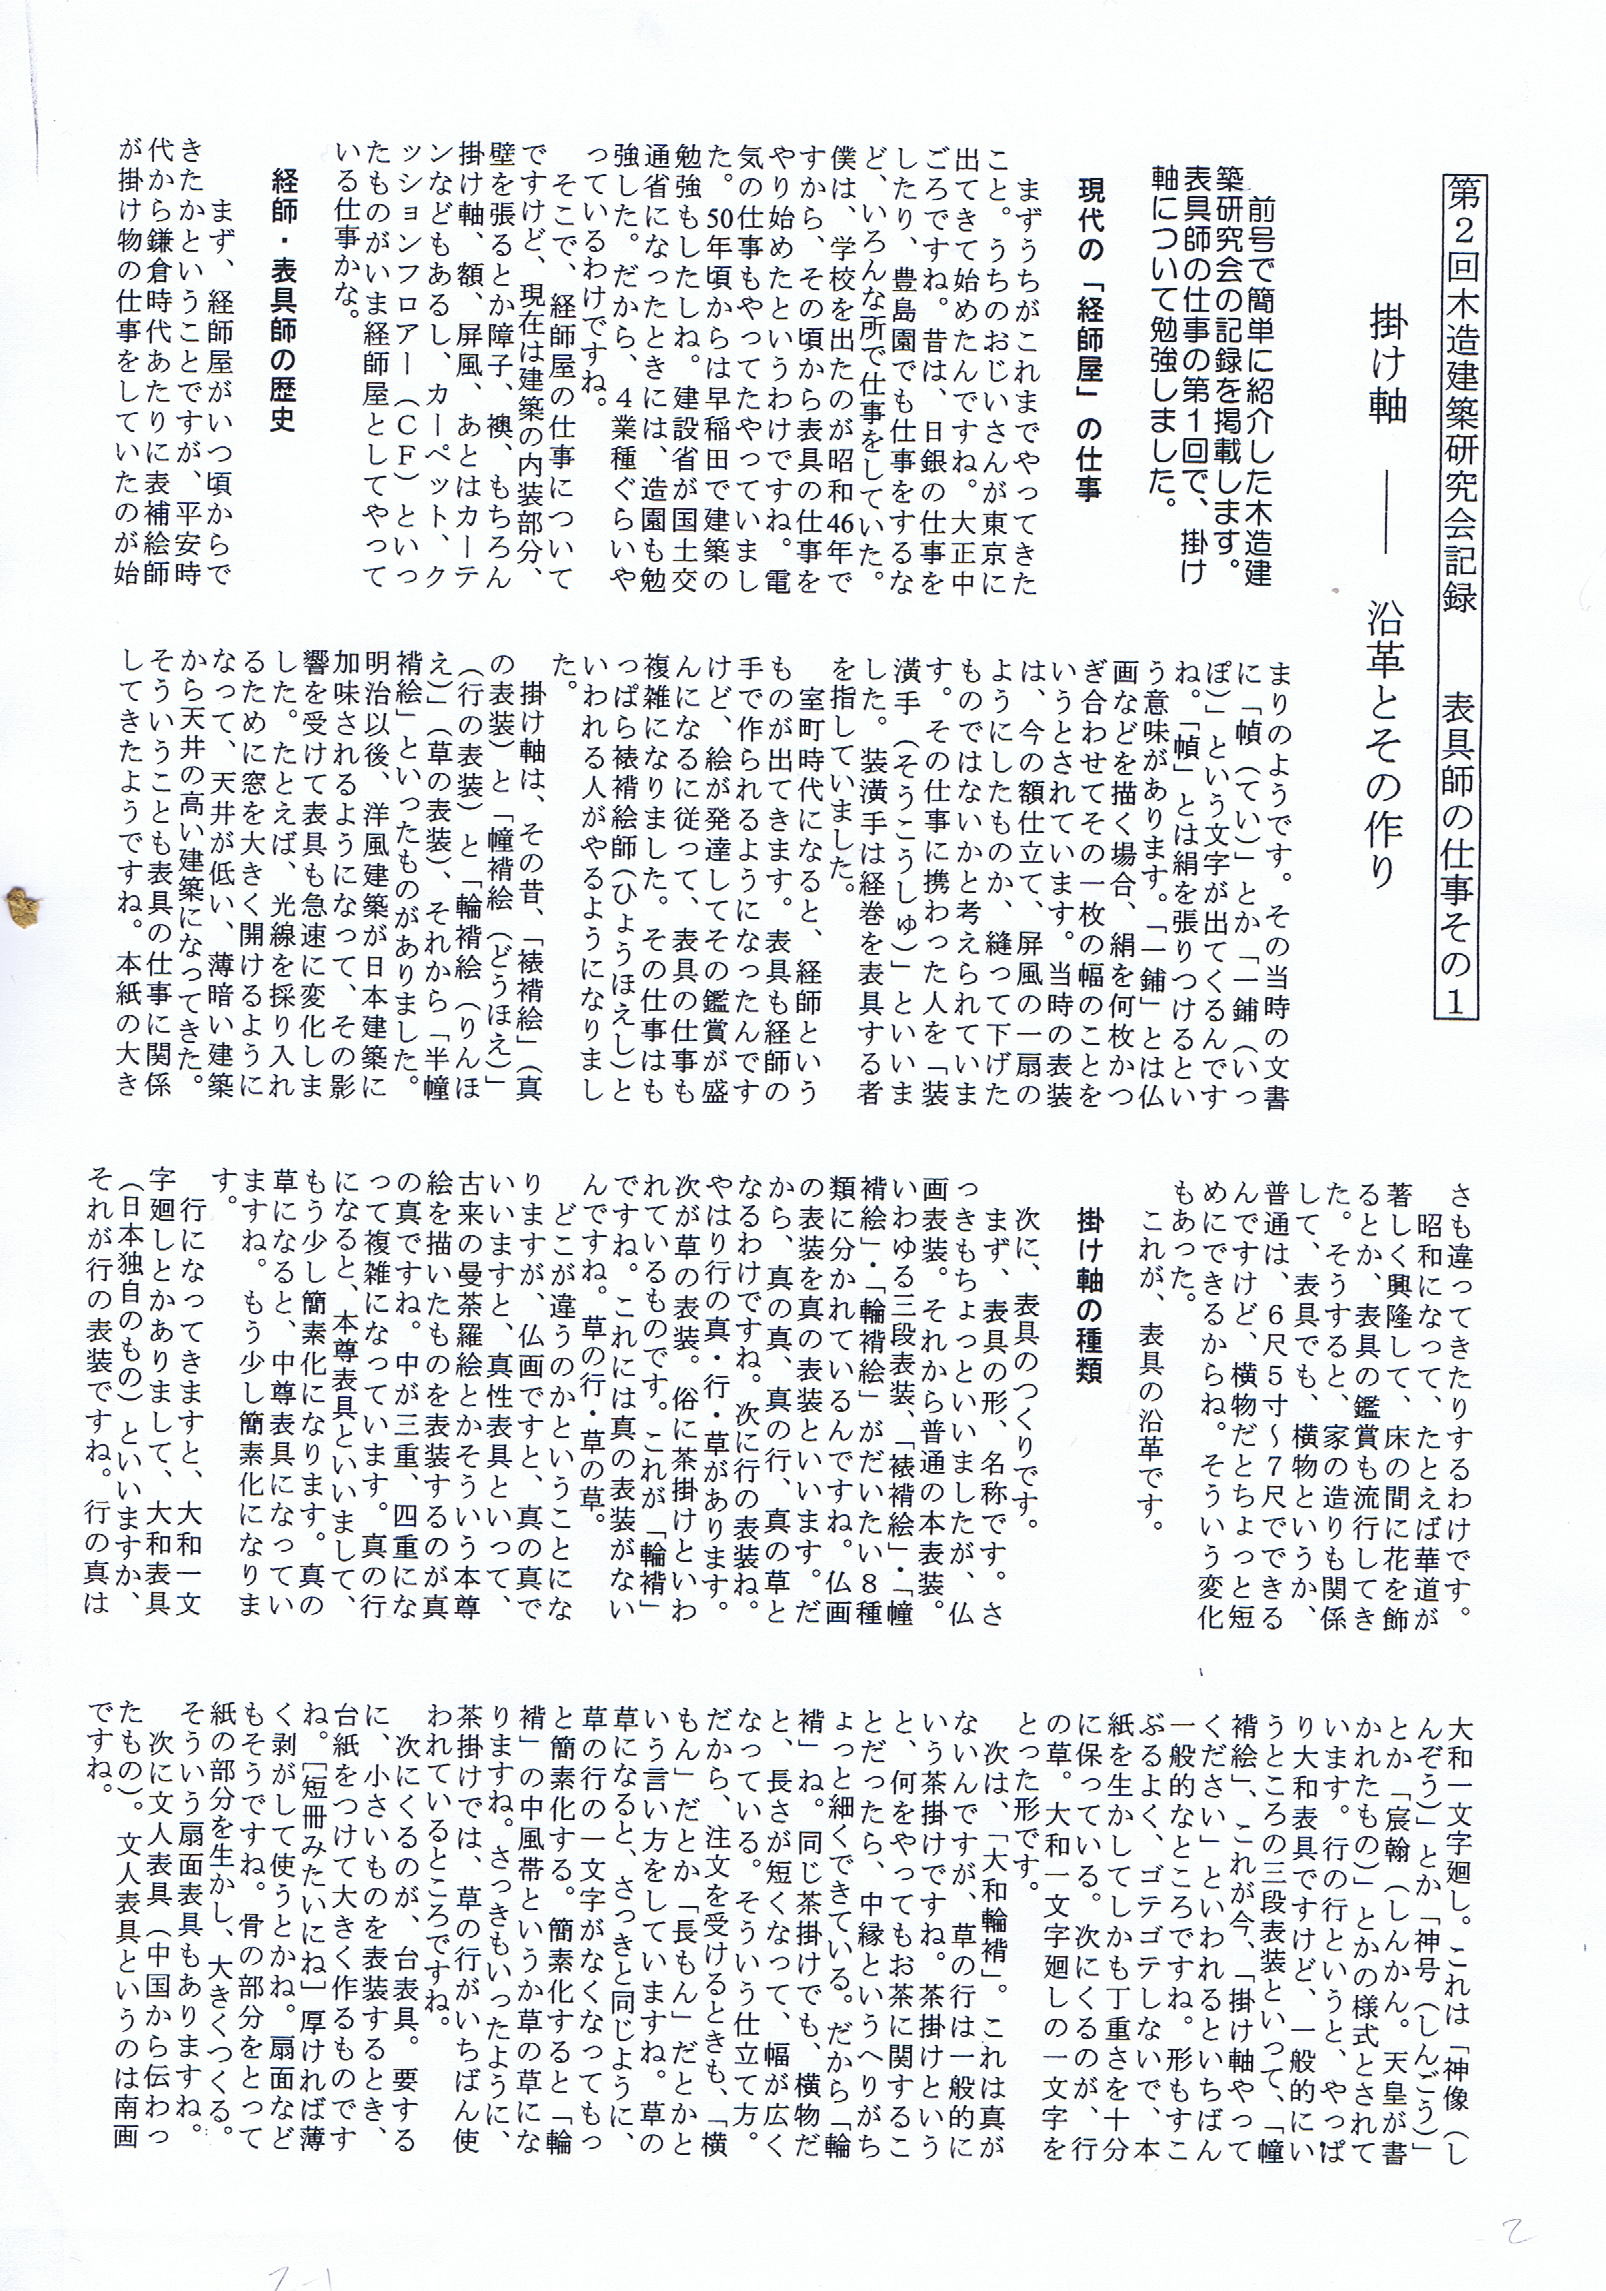 第2回木造建築研究会記録　表具師の仕事その1
掛け軸 ―― 沿革とその作り
前号で簡単に紹介した木造建
築研究会の記録を掲載します。
表具師の仕事の第1回で、掛け
軸について勉強しました。
現代の「経師屋」の仕事
まずうちがこれまでやってきた
こと。うちのおじいさんが東京に
出てきて始めたんですね。大正中
ごろですね。昔は、日銀の仕事を
したり、豊島園でも仕事をするな
ど、いろんな所で仕事をしていた。
僕は、学校を出たのが昭和46年で
すから、その頃から表具の仕事を
やり始めたというわけですね。電
気の仕事もやってたやっていまし
た。50年頃からは早稲田で建築の
勉強もしたしね。建設省が国土交
通省になったときには、造園も勉
強した。だから、4業種ぐらいや
っているわけですね。
そこで、経師屋の仕事について
ですけど、現在は建築の内装部分、
壁を張るとか障子、襖、もちろん
掛け軸、額、屏風、あとはカーテ
ンなどもあるし、カーペット、ク
ッションフロアー（CF）といっ
たものがいま経師屋としてやって
いる仕事かな。
経師・表具師の歴史
まず、経師屋がいつ頃からで
きたかということですが、平安時
代から鎌倉時代あたりに表補絵師
が掛け物の仕事をしていたのが始
まりのようです。その当時の文書
に「幀（てい）」とか「一鋪（いっ
ぽ）」という文字が出てくるんです
ね。「幀」とは絹を張りつけるとい
う意味があります。「一鋪」とは仏
画などを描く場合、絹を何枚かつ
ぎ合わせてその一枚の幅のことを
いうとされています。当時の表装
は、今の額仕立て、屏風の一扇の
ようにしたものか、縫って下げた
ものではないかと考えられていま
す。その仕事に携わった人を「装
潢手（そうこうしゅ）」といいま
した。装潢手は経巻を表具する者
を指していました。
室町時代になると、経師という
ものが出てきます。表具も経師の
手で作られるようになったんです
けど、絵が発達してその鑑賞が盛
んになるに従って、表具の仕事も
複雑になりました。その仕事はも
っぱら裱褙絵師（ひょうほえし）と
いわれる人がやるようになりまし
た。
掛け軸は、その昔、「裱褙絵」（真
の表装）と「幢褙絵（どうほえ）」
（行の表装）と「輪褙絵（りんほ
え）」（草の表装）、それから「半幢
褙絵」といったものがありました。
明治以後、洋風建築が日本建築に
加味されるようになって、その影
響を受けて表具も急速に変化しま
した。たとえば、光線を採り入れ
るために窓を大きく開けるように
なって、天井が低い、薄暗い建築
から天井の高い建築になってきた。
そういうことも表具の仕事に関係
してきたようですね。本紙の大き
さも違ってきたりするわけです。
昭和になって、たとえば華道が
著しく興隆して、床の間に花を飾
るとか、表具の鑑賞も流行してき
た。そうすると、家の造りも関係
して、表具でも、横物というか、
普通は、6尺5寸～7尺でできる
んですけど、横物だとちょっと短
めにできるからね。そういう変化
もあった。
これが、表具の沿革です。
掛け軸の種類
次に、表具のつくりです。
まず、表具の形、名称です。さ
っきもちょっといいましたが、仏
画表装。それから普通の本表装。
いわゆる三段表装、「裱褙絵」・「幢
褙絵」・「輪褙絵」がだいたい8種
類に分かれているんですね。仏画
の表装を真の表装といいます。だ
から、真の真、真の行、真の草と
なるわけですね。次に行の表装ね。
やはり行の真・行・草があります。
次が草の表装。俗に茶掛けといわ
れているものです。これが「輪褙」
ですね。これには真の表装がない
んですね。草の行・草の草。
どこが違うのかということにな
りますが、仏画ですと、真の真で
いいますと、真性表具といって、
古来の曼荼羅絵とかそういう本尊
絵を描いたものを表装するのが真
の真ですね。中が三重、四重にな
って複雑になっています。真の行
になると、本尊表具といいまして、
もう少し簡素化になります。真の
草になると、中尊表具になってい
ますね。もう少し簡素化になりま
す。
行になってきますと、大和一文
字廻しとかありまして、大和表具
（日本独自のもの）といいますか、
それが行の表装ですね。行の真は
大和一文字廻し。これは「神像（し
んぞう）」とか「神号（しんごう）」
とか「宸翰（しんかん。天皇が書
かれたもの）」とかの様式とされて
います。行の行というと、やっぱ
り大和表具ですけど、一般的にい
うところの三段表装といって、「幢
褙絵」、これが今、「掛け軸やって
ください」といわれるといちばん
一般的なところですね。形もすこ
ぶるよく、ゴテゴテしないで、本
紙を生かしてしかも丁重さを十分
に保っている。次にくるのが、行
の草。大和一文字廻しの一文字を
とった形です。
次は、「大和輪褙」。これは真が
ないんですが、草の行は一般的に
いう茶掛けですね。茶掛けという
と、何をやってもお茶に関するこ
とだったら、中縁というへりがち
ょっと細くできている。だから「輪
褙」ね。同じ茶掛けでも、横物だ
と、長さが短くなって、幅が広く
なっている。そういう仕立て方。
だから、注文を受けるときも、「横
もん」だとか「長もん」だとかと
いう言い方をしていますね。草の
草になると、さっきと同じように、
草の行の一文字がなくなってもっ
と簡素化する。簡素化すると「輪
褙」の中風帯というか草の草にな
りますね。さっきもいったように、
茶掛けでは、草の行がいちばん使
われているところですね。
次にくるのが、台表具。要する
に、小さいものを表装するとき、
台紙をつけて大きく作るものです
ね。［短冊みたいにね］厚ければ薄
く剥がして使うとかね。扇面など
もそうですね。骨の部分をとって
紙の部分を生かし、大きくつくる。
そういう扇面表具もありますね。
次に文人表具（中国から伝わっ
たもの）。文人表具というのは南画
ですね。
2